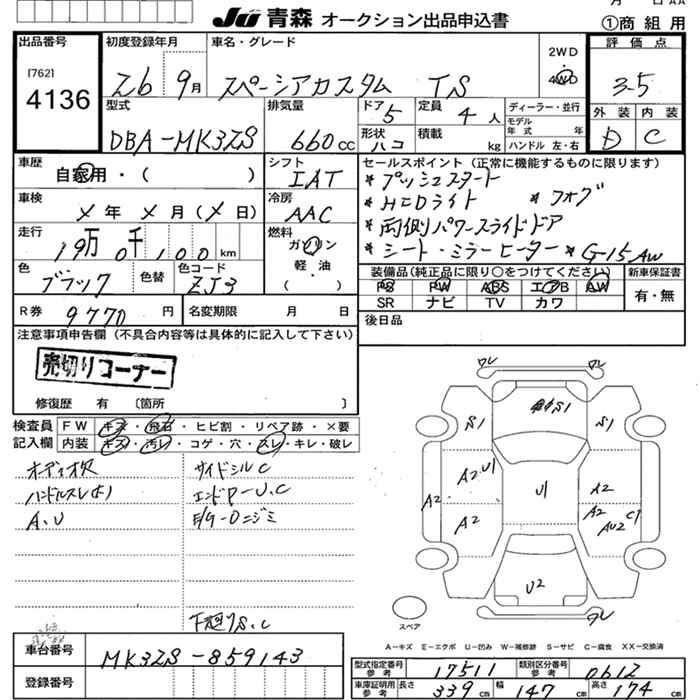 JU 青森 オークション出品申込書 ①商組用
出品番号 初度登録年月 車名・グレード 2WD 4WD 評価点
[762] 4136 26 9月 スペーシアカスタム TS 3.5
型式 排気量 ドア 5 定員 4人 ディーラー・並行 外装 内装
DBA-MK32S 660cc モデル年式 年式 D C
形状 ハコ 積載 kg ハンドル 左・右
車歴 自家用・( ) シフト IAT セールスポイント(正常に機能するものに限ります)
* プッシュスタート
車検 メ年 メ月(メ日) 冷房 AAC * HIDライト * フォグ
* 両側パワースライドドア
走行 19万0千100km 燃料 ガソリン 軽油 ( ) * シート・ミラーヒーター * G-15AW
色 ブラック 色替 色コード ZJ3 装備品(純正品に限り〇をつけてください) 新車保証書
PS PW ABS エアB AW 有・無
SR ナビ TV カワ
R券 9770円 名変期限 月 日 後日品
注意事項申告欄(不具合内容等は具体的に記入して下さい)
売切りコーナー
修復歴 有 〔箇所 〕
検査員 FW キズ・飛石・ヒビ割・リペア跡・×要
記入欄 内装 キズ・汚レ・コゲ・穴・スレ・キレ・破レ
オーディオ欠 サイドシルC
ハンドルスレ(小) エンドP-U.C
A、U E/G-Oニジミ
下廻りS、C
ワレ ワレ
S1 S1
A2 U1 U1 A2
A2 A2 A2 AU2 C1
U2
ワレ
スペア
A=キズ E=エクボ U=凹み W=補修跡 S=サビ C=腐食 XX=交換済
車台番号 MK32S-859143
登録番号
型式指定番号 参考 17511 類別区分番号 参考 0612
車庫証明用 参考 長さ 339cm 幅 147cm 高さ 174cm